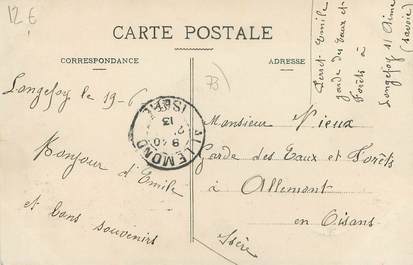 12 €
CARTE POSTALE
CORRESPONDANCE
ADRESSE
73
Perret Emile
garde des Eaux et
Forêts à
Longefoy s/ Aime
(Savoie)
Longefoy le 19-6
Bonjour d'Emile
et bons souvenirs
ALLEMOND
ISÈRE
9 40
13
Monsieur Vieux
Garde des Eaux et Forêts
à Allemont
en Oisans
Isère